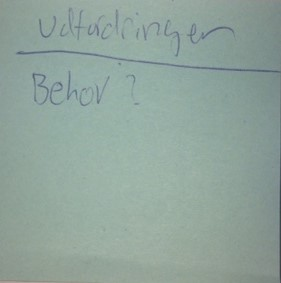 Udfordringen
Behov?